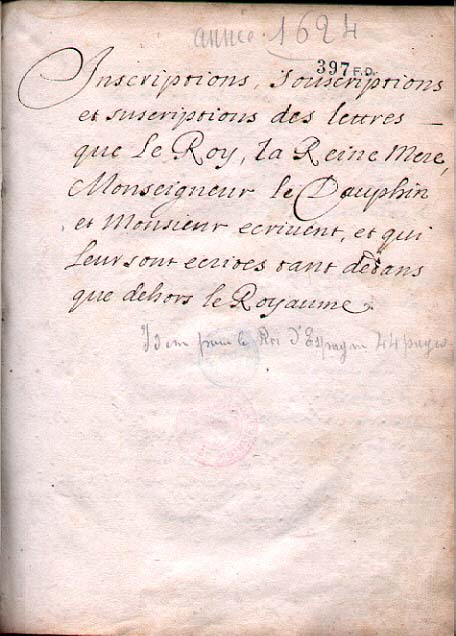 année 1624
397 F.D.
Inscriptions, Souscriptions
et suscriptions des lettres
que Le Roy, la Reine Mere,
Monseigneur le Dauphin
et Monsieur ecrivent, et qui
Leur sont ecrites tant dedans
que dehors le Royaume.
Idem pour le Roi d'Espagne 44 pages